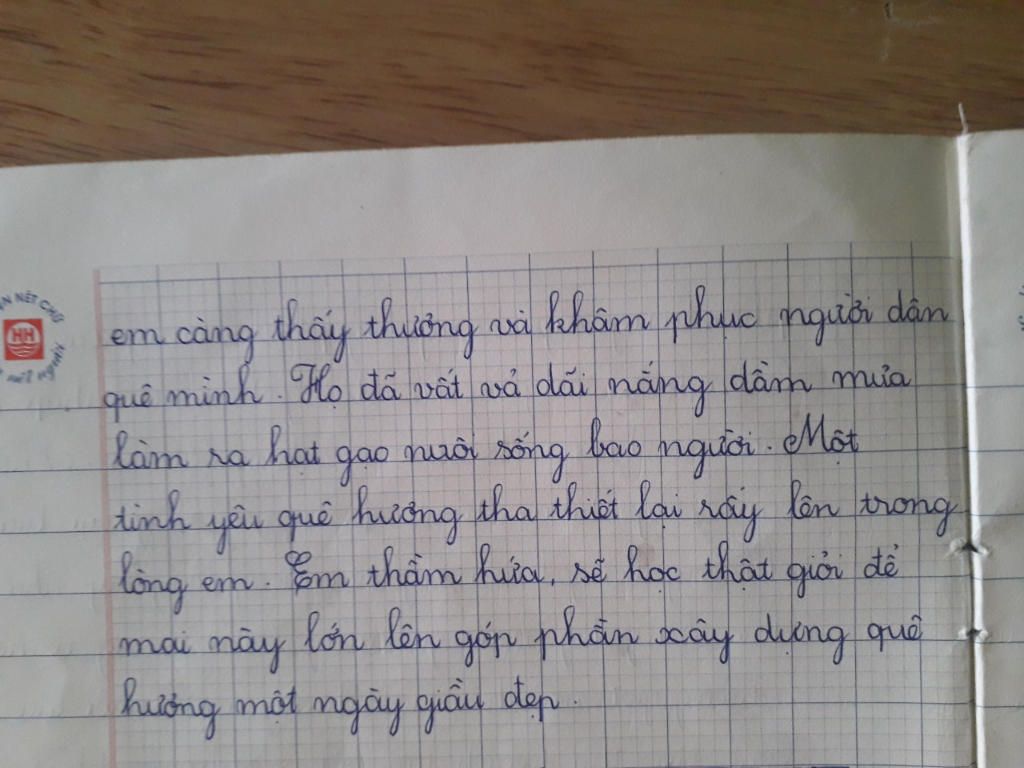 ẸN NÉT CHỮ
HH
em càng thấy thương và khâm phục người dân
quê mình. Họ đã vất vả dãi nắng dầm mưa
làm ra hạt gạo nuôi sống bao người. Một
tình yêu quê hương tha thiết lại rấy lên trong
lòng em. Em thầm hứa, sẽ học thật giỏi để
mai này lớn lên góp phần xây dựng quê
hương một ngày giầu đẹp.